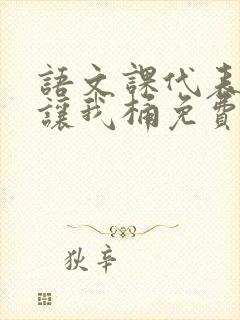 語文課代表
讓我桶免費
狄辛